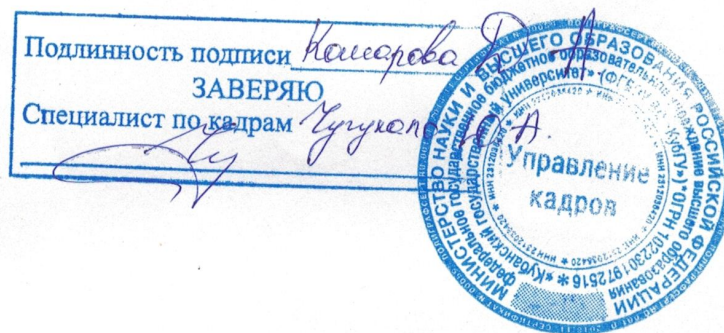 Подлинность подписи Комарова Д А
ЗАВЕРЯЮ
Специалист по кадрам А.
МИНИСТЕРСТВО НАУКИ И ВЫСШЕГО ОБРАЗОВАНИЯ РОССИЙСКОЙ ФЕДЕРАЦИИ
федеральное государственное бюджетное образовательное учреждение высшего образования
«Кубанский государственный университет» (ФГБОУ ВО «КубГУ») ОГРН 1022301972516
ИНН 2312038420
Управление
кадров